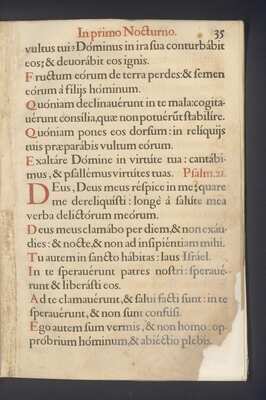 In primo Nocturno. 35
vultus tui: Dóminus in ira sua conturbábit
eos; & devorábit eos ignis.
Fructum eórum de terra perdes: & semen
eórum á filijs hóminum.
Quóniam declinavérunt in te mala: cogita-
uérunt consília, quæ non potuérũt stabilíre.
Quóniam pones eos dorsum: in relíquijs
tuis præparábis vultum eórum.
Exaltáre Dómine in virtúte tua: cantábi-
mus, & psallémus virtútes tuas. Psalm. 21.
DEus, Deus meus réspice in me; quare
me dereliquísti: longé á salúte mea
verba delictórum meórum.
Deus meus clamábo per diem, & non exáu-
dies: & nocte, & non ad insipiéntiam mihi.
Tu autem in sancto hábitas: laus Israel.
In te speravérunt patres nostri: speravé-
runt & liberásti eos.
Ad te clamavérunt, & salui facti sunt: in te
speravérunt, & non sunt confúsi.
Ego autem sum vermis, & non homo: op-
próbrium hóminum, & abiéctio plebis.